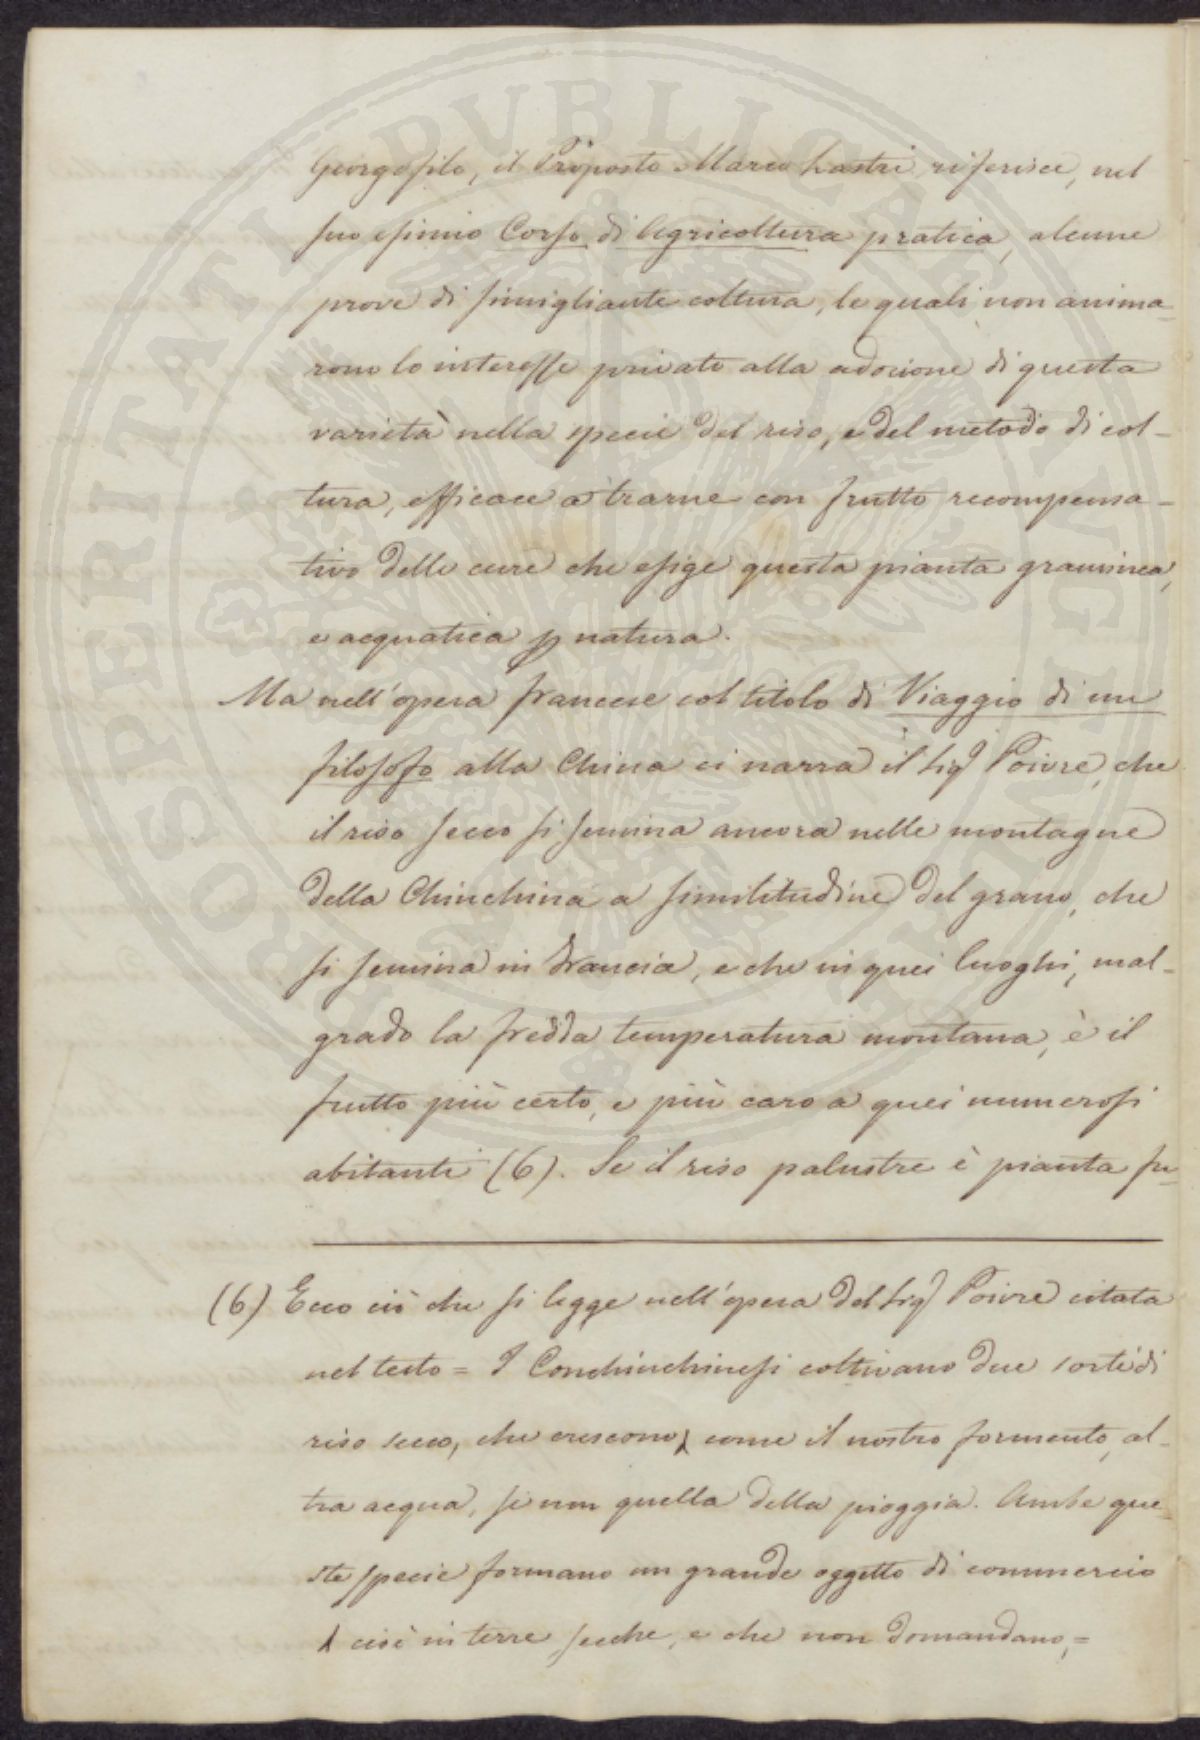 Georgofilo, il Proposto Marco Lastri riferisce, nel
suo esimio Corso di Agricoltura pratica, alcune
prove di simigliante coltura, le quali non anima-
rono lo interesse privato alla adozione di questa
varietà nella specie del riso, e del metodo di col-
tura, efficace a trarne con frutto recompensa-
tivo delle cure che esige questa pianta graminea,
e acquatica p natura.
Ma nell'opera francese col titolo di Viaggio di un
filosofo alla China ci narra il Sig Poivre, che
il riso secco si semina ancora nelle montagne
della Chinchina a similitudine del grano, che
si semina in Francia, e che in quei luoghi, mal-
grado la fredda temperatura montana, è il
frutto più certo, e più caro a quei numerosi
abitanti (6). Se il riso palustre è pianta fu-
(6) Ecco ciò che si legge nell'opera del Sig Poivre citata
nel testo = I Conchinchinesi coltivano due sorte di
riso secco, che crescono, come il nostro formento, al-
tra acqua, se non quella della pioggia. Ambe que-
ste specie formano un grande oggetto di commercio
cioè in terre secche, e che non domandano, =
PROSPERITATI PUBLICAE AUGENDAE